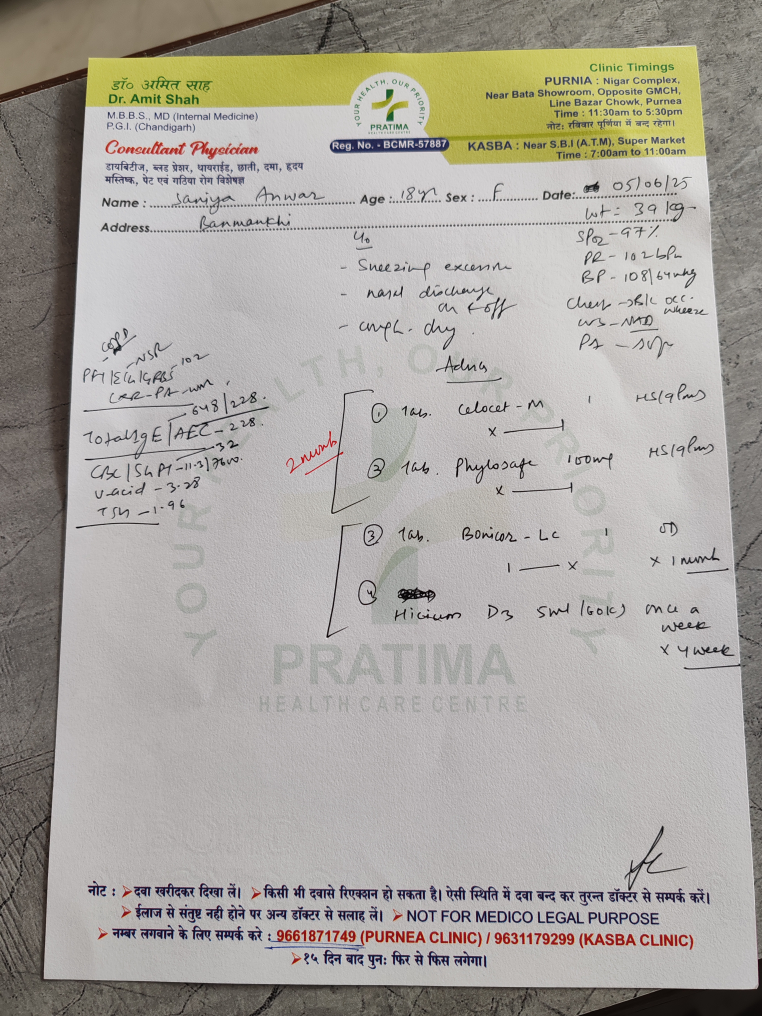 डा० अमित साह
Dr. Amit Shah
M.B.B.S., MD (Internal Medicine)
P.G.I. (Chandigarh)
Consultant Physician
डायबिटीज, ब्लड प्रेशर, थायराईड, छाती, दमा, हृदय
मस्तिष्क, पेट एवं गठिया रोग विशेषज्ञ
YOUR HEALTH, OUR PRIORITY
PRATIMA
HEALTH CARE CENTRE
Reg. No. - BCMR-57887
Clinic Timings
PURNIA : Nigar Complex,
Near Bata Showroom, Opposite GMCH,
Line Bazar Chowk, Purnea
Time : 11:30am to 5:30pm
नोट: रविवार पूर्णिया में बन्द रहेगा।
KASBA : Near S.B.I (A.T.M), Super Market
Time : 7:00am to 11:00am
Name : Saniya Anwar Age : 18 yr Sex : F Date: 05/06/25
Address Banmankhi
wt = 39 kg
SPO2 - 97%
PR - 102 bpm
BP - 108/64
Chest B/L occ. wheeze
NAD
PA - soft
c/o
- Sneezing excessive
- nasal discharge on & off
- cough - dry
NSR
102
648/228
Total IgE / AEC - 228
32
U.acid - 3.28
TSH - 1.96
Advice
2 month
① Tab. - M 1 HS/9pm
x
② Tab. Phylosafe 100mg HS/9pm
x
③ Tab. - LC 1 OD
1 x x 1 month
④ D3 5ml (60K) once a week
x 4 week
YOUR HEALTH, OUR PRIORITY
PRATIMA
HEALTH CARE CENTRE
नोट : ➤दवा खरीदकर दिखा लें। ➤किसी भी दवासे रिएक्शन हो सकता है। ऐसी स्थिति में दवा बन्द कर तुरन्त डॉक्टर से सम्पर्क करें।
➤ईलाज से संतुष्ट नही होने पर अन्य डॉक्टर से सलाह लें। ➤NOT FOR MEDICO LEGAL PURPOSE
➤नम्बर लगवाने के लिए सम्पर्क करे : 9661871749 (PURNEA CLINIC) / 9631179299 (KASBA CLINIC)
➤१५ दिन बाद पुन: फिर से फिस लगेगा।